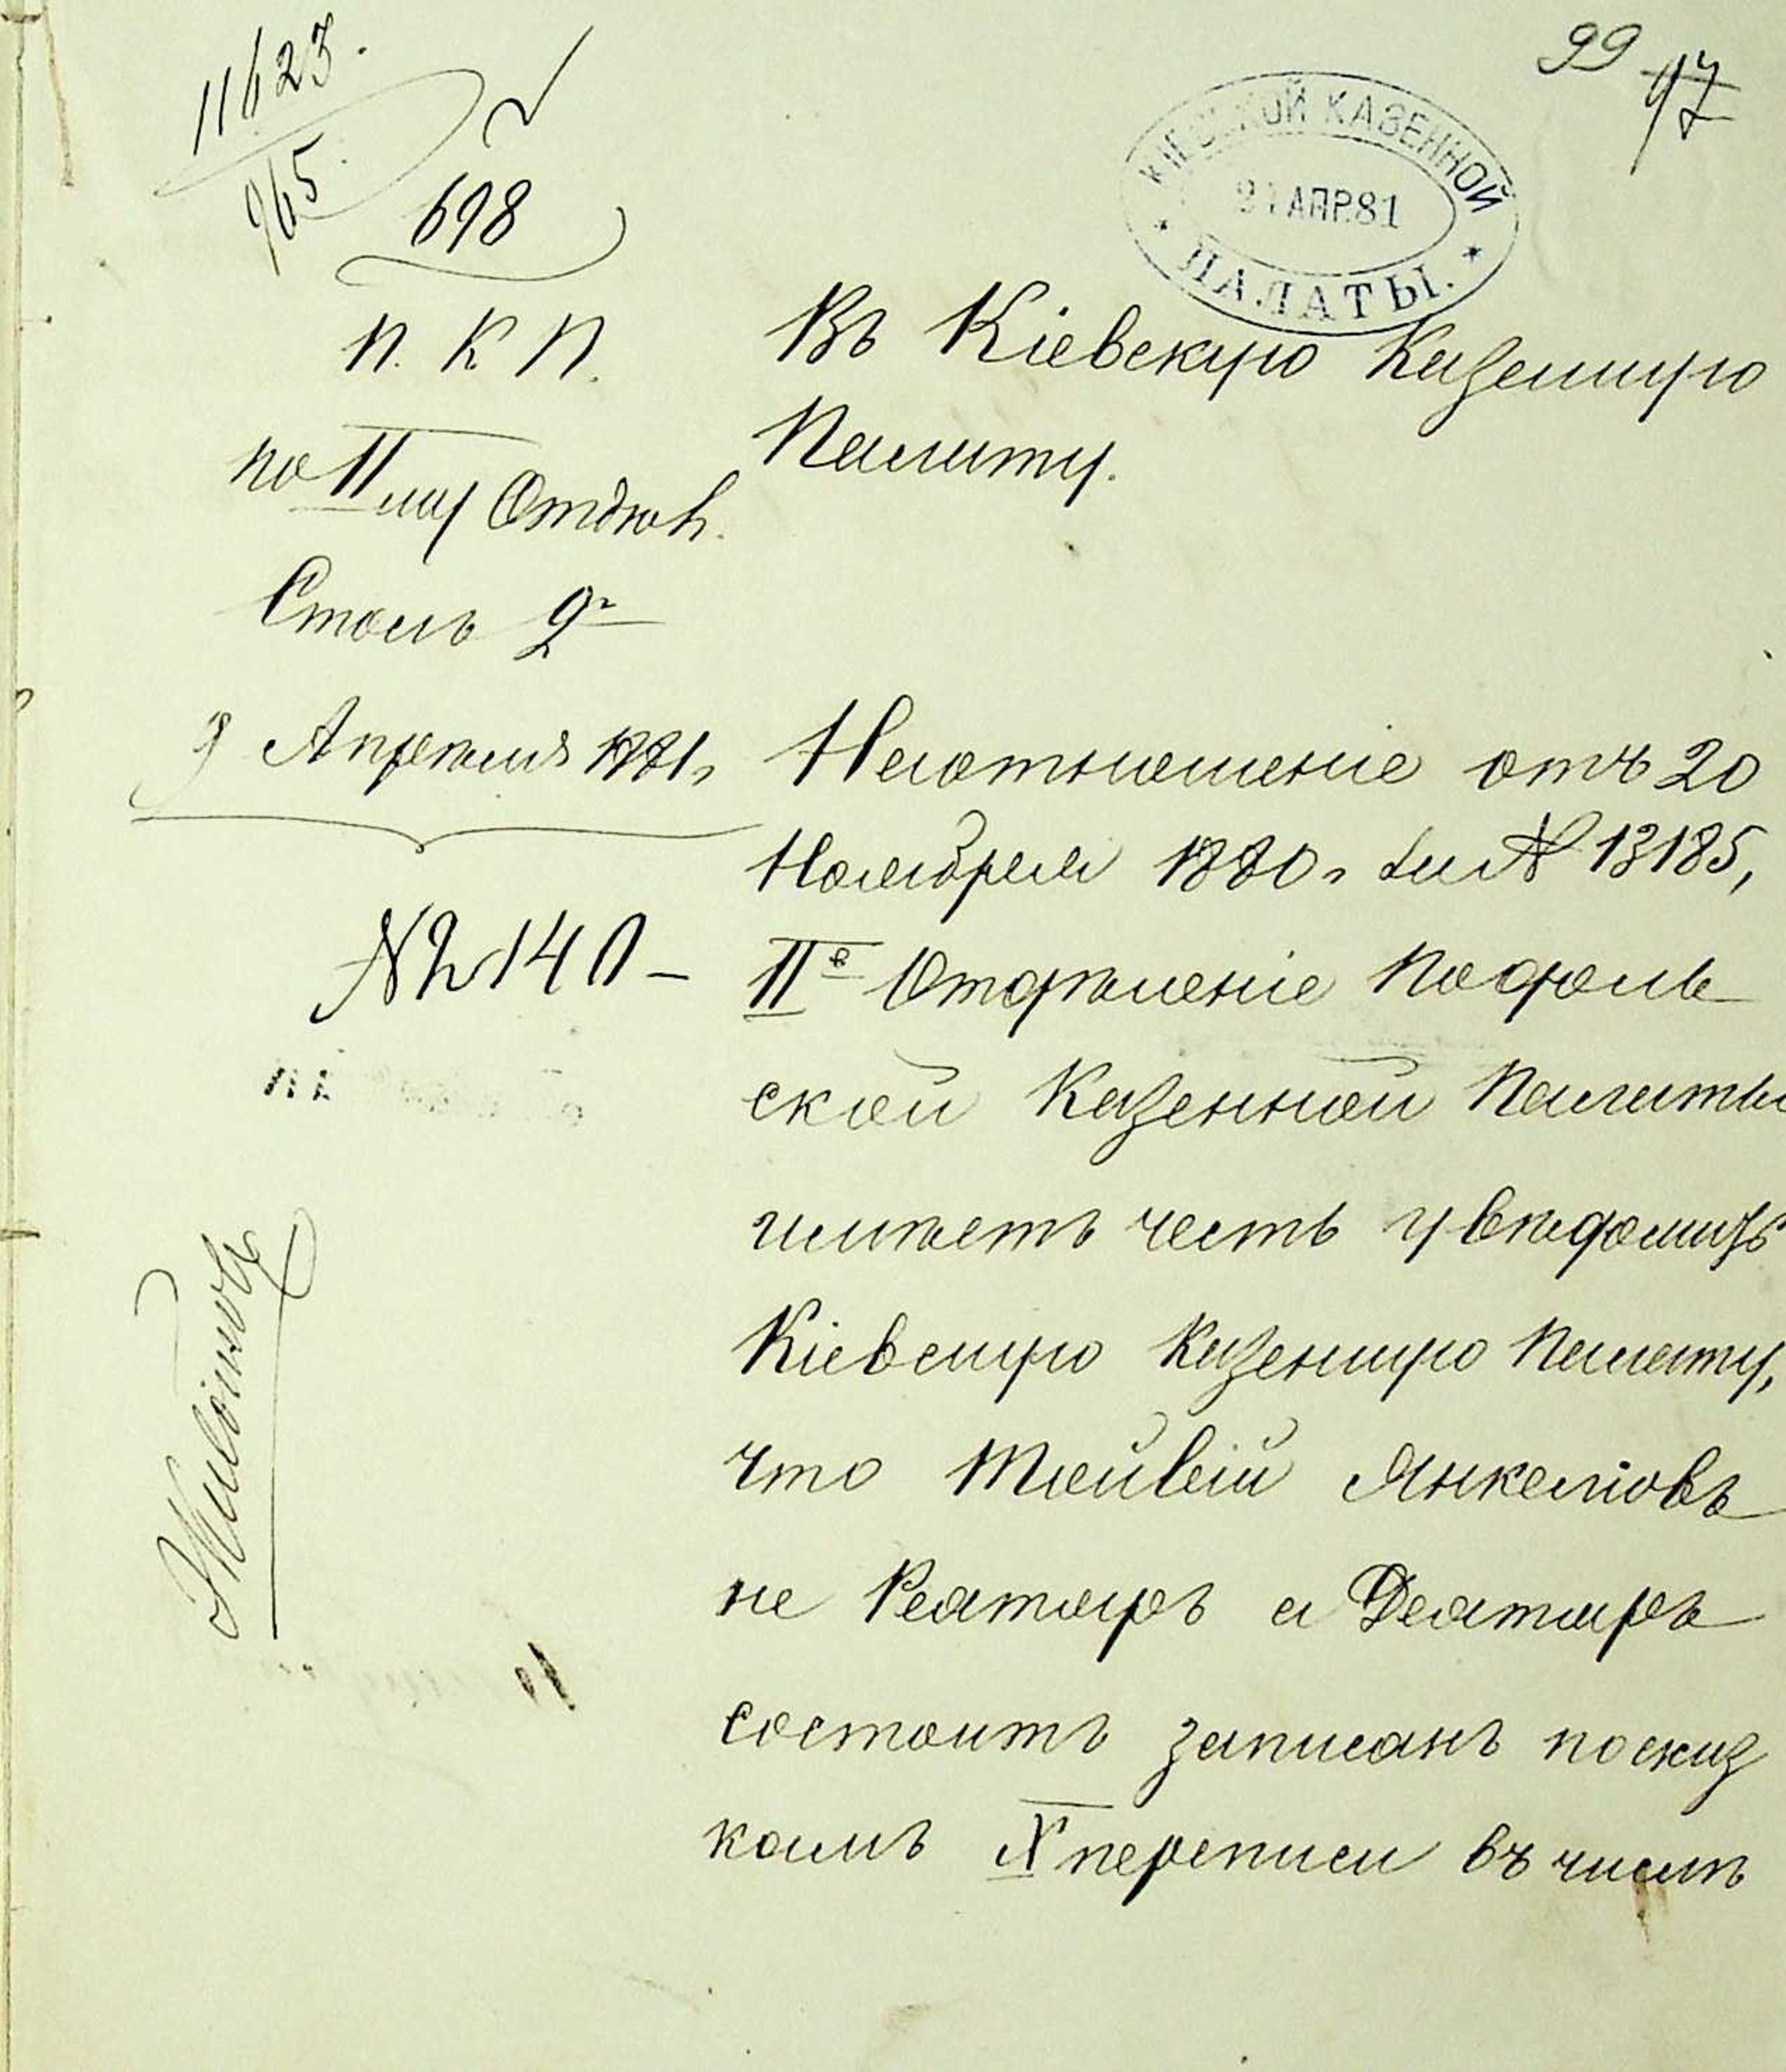 11623.
965
698
99 97
КІЕВСКОЙ КАЗЕННОЙ
АПР.81
ПАЛАТЫ.
П. К П.
по IIму Отдѣл.
Столъ 2й
9 Апрѣля 1881 г
№ 2140 –
Въ Кіевскую Казенную
Палату.
На отношеніе отъ 20
Ноября 1880 г за № 13185,
IIе Отдѣленіе Подоль
ской Казенной Палаты
имѣетъ честь увѣдомить
Кіевскую Казенную Палату,
что Мойвей Янкелiовъ
не Реатаръ а Деатаръ
состоитъ записанъ по сказ
камъ X переписи въ числѣ